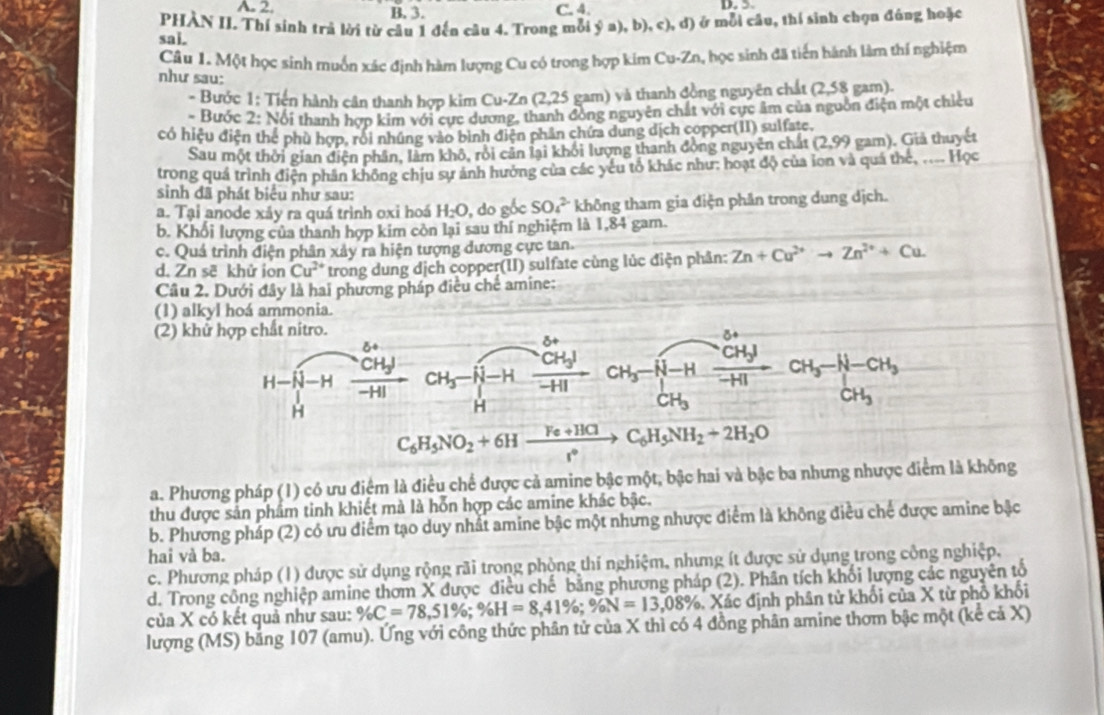 A. 2. B. 3. C. 4. D. 5.
PHẦN II. Thí sinh trả lời từ câu 1 đến câu 4. Trong mỗi ý a), b), c), d) ở mỗi câu, thí sinh chọn đúng hoặc
sai.
Câu 1. Một học sinh muốn xác định hàm lượng Cu có trong hợp kim Cu-Zn, học sinh đã tiến hành làm thí nghiệm
như sau:
- Bước 1: Tiến hành cân thanh hợp kim Cu-Zn (2,25 gam) và thanh đồng nguyên chất (2,58 gam).
- Bước 2: Nối thanh hợp kim với cực dương, thanh đồng nguyên chất với cực âm của nguồn điện một chiều
có hiệu điện thế phù hợp, rồi nhúng vào bình điện phân chứa dung dịch copper(II) sulfate.
Sau một thời gian điện phân, làm khô, rồi cân lại khối lượng thanh đồng nguyên chất (2,99 gam). Giả thuyết
trong quá trình điện phân không chịu sự ảnh hưởng của các yếu tố khác như: hoạt độ của ion và quá thế, .... Học
sinh đã phát biểu như sau:
a. Tại anode xảy ra quá trình oxi hoá H₂O, do gốc SO₄²⁻ không tham gia điện phân trong dung dịch.
b. Khối lượng của thanh hợp kim còn lại sau thí nghiệm là 1,84 gam.
c. Quá trình điện phân xảy ra hiện tượng dương cực tan.
d. Zn sẽ khử ion Cu²⁺ trong dung dịch copper(II) sulfate cùng lúc điện phân: Zn + Cu²⁺ → Zn²⁺ + Cu.
Câu 2. Dưới đây là hai phương pháp điều chế amine:
(1) alkyl hoá ammonia.
(2) khử hợp chất nitro.
δ+ δ+ δ+
H–N̈–H CH₃I –HI → CH₃–N̈–H CH₃I –HI → CH₃–N̈–H CH₃I –HI → CH₃–N̈–CH₃
H H CH₃ CH₃
C₆H₅NO₂ + 6H Fe + HCl t° → C₆H₅NH₂ + 2H₂O
a. Phương pháp (1) có ưu điểm là điều chế được cả amine bậc một, bậc hai và bậc ba nhưng nhược điểm là không
thu được sản phẩm tinh khiết mà là hỗn hợp các amine khác bậc.
b. Phương pháp (2) có ưu điểm tạo duy nhất amine bậc một nhưng nhược điểm là không điều chế được amine bậc
hai và ba.
c. Phương pháp (1) được sử dụng rộng rãi trong phòng thí nghiệm, nhưng ít được sử dụng trong công nghiệp.
d. Trong công nghiệp amine thơm X được điều chế bằng phương pháp (2). Phân tích khối lượng các nguyên tố
của X có kết quả như sau: %C = 78,51%; %H = 8,41%; %N = 13,08%. Xác định phân tử khối của X từ phổ khối
lượng (MS) bằng 107 (amu). Ứng với công thức phân tử của X thì có 4 đồng phân amine thơm bậc một (kể cả X)